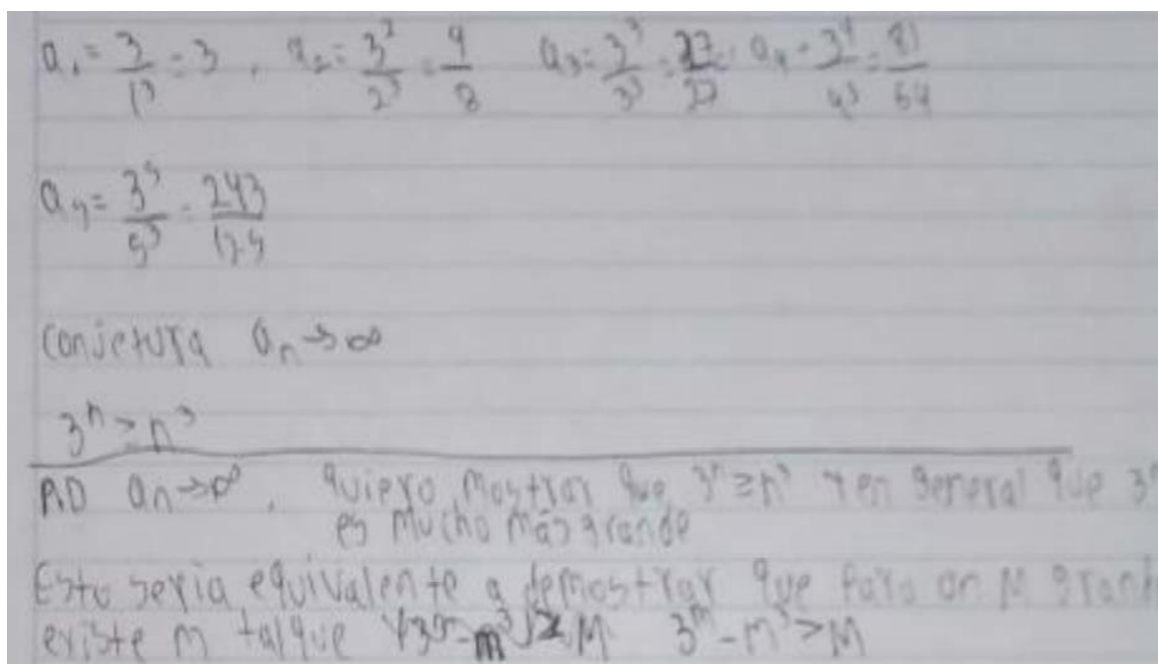 a₁ = 3/1³ = 3 , a₂ = 3²/2³ = 9/8 a₃ = 3³/3³ = 27/27 = a₄ = 3⁴/4³ = 81/64
a₅ = 3⁵/5³ = 243/125
Conjetura aₙ → ∞
3ⁿ > n³
P.D aₙ → ∞ , quiero mostrar que 3ⁿ ≥ n³ y en general que 3ⁿ
es mucho más grande
Esto seria equivalente a demostrar que para un M
existe m tal que 3ᵐ - m³ > M